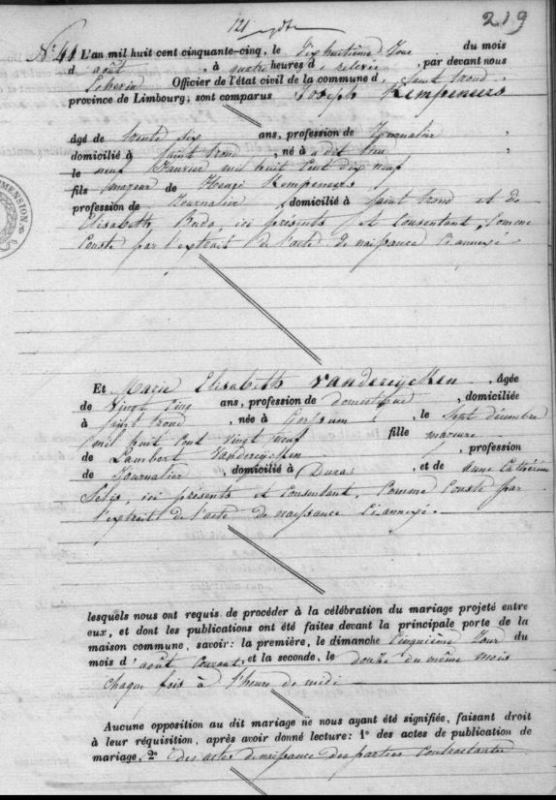 219
N° 41 L'an mil huit cent cinquante-cinq, le dixhuitième Jour du mois
d'août, à quatre heures de relevée, par devant nous
Officier de l'état civil de la commune de Saint Trond,
province de Limbourg; sont comparus Joseph Kempeneers
âgé de trente six ans, profession de Journalier,
domicilié à Saint Trond, né à dit lieu
le neuf Janvier mil huit Cent dix neuf
fils majeur de Kempeneers,
profession de Journalier, domicilié à Saint Trond et de
Elisabeth ici présents et Consentant, Comme
Conste par l'extrait de l'acte de naissance Ci annexé.
Et Marie Elisabeth Vandereycken, âgée
de Vingt Cinq ans, profession de domestique, domiciliée
à Saint Trond, née à Gorssum, le Sept décembre
mil huit cent vingt neuf fille majeure
de Lambert Vandereycken, profession
de Journalier, domicilié à Duras, et de Anne Catherine
ici présents et Consentant, Comme Conste par
l'extrait de l'acte de naissance Ci annexé.
lesquels nous ont requis de procéder à la célébration du mariage projeté entre
eux, et dont les publications ont été faites devant la principale porte de la
maison commune, savoir: la première, le dimanche Cinquième Jour du
mois d'août Courant, et la seconde, le douze du même mois
Chaque fois à l'heure de midi
Aucune opposition au dit mariage ne nous ayant été signifiée, faisant droit
à leur réquisition, après avoir donné lecture: 1° des actes de publication de
mariage, 2° des actes de naissance des parties Contractantes